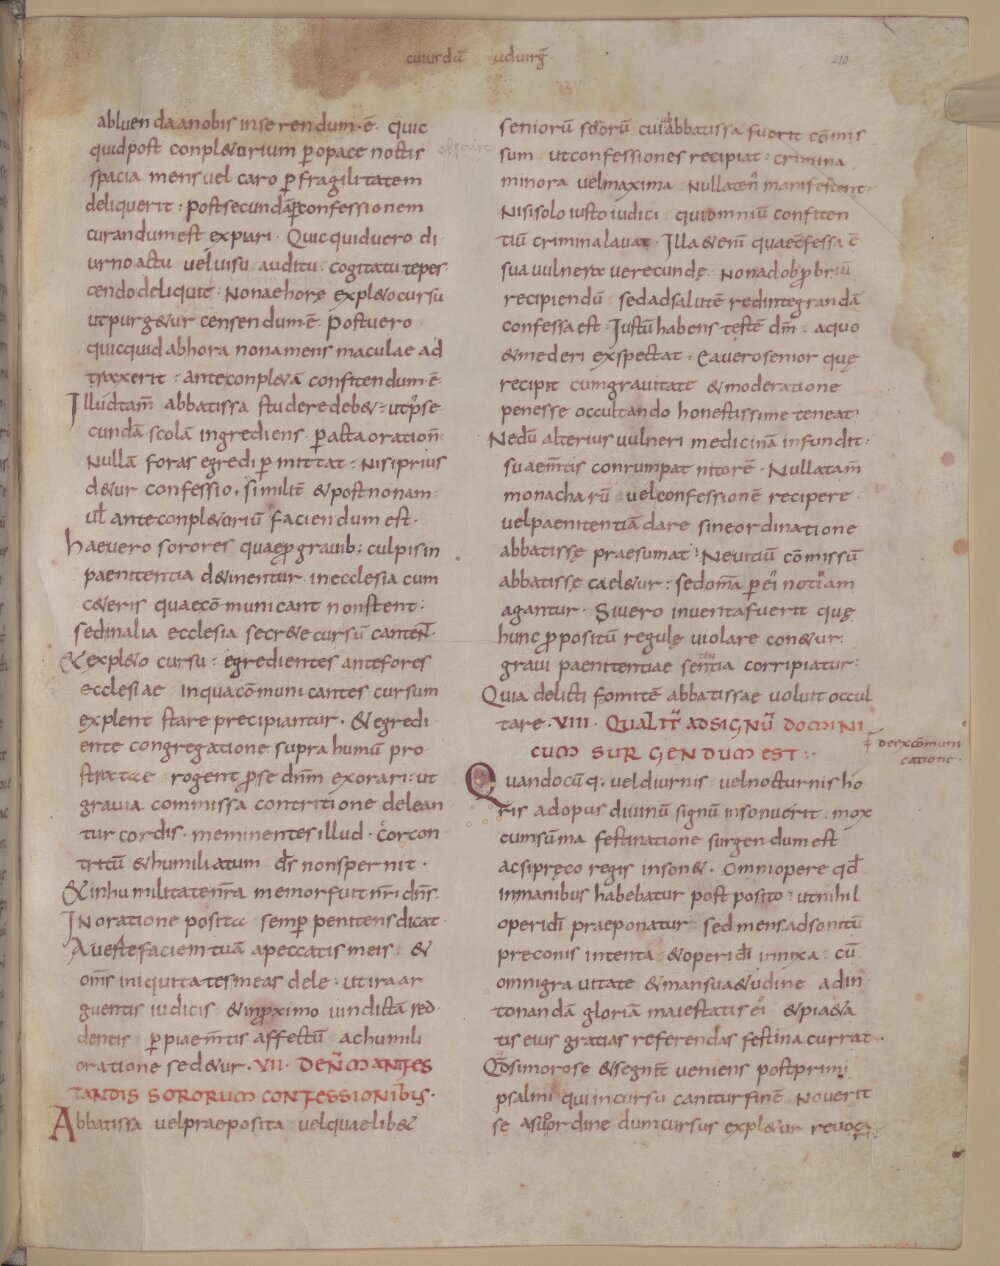 cuiusdā ad uirḡ
210
abluenda a nobis inserendum · ē · quic
quid post conpl&orium p̱ opace noctis
spacia mens uel caro p̱ fragilitatem
deliquerit : post secundā p̱ confessionem
curandum est expiari · Quicquid uero di
urno actu uel uisu · auditu · cogitatu tepes
cendo deliquit : Nonae horę expl&o cursu
ut purg&ur censendum · ē · Post uero
quicquid ab hora nona mens maculae ad
traxerit : ante conpl&ā confitendum · ē ·
Illud tam̄ abbatissa studere deb& : ut p̱ se
cundā scolā ingrediens · p̱acta oration̄
Nullā foras egredi p̱mittat : Nisi prius
d&ur confessio · similit̄ & post nonam
ul̄ ante conpl&oriū faciendum est ·
haec uero sorores quae p̱ grauib; culpis in
paenitentia d&inentur · in ecclesia cum
c&eris quae cōmunicant non stent :
sed in alia ecclesia secr&e cursū canten̄t ·
& expl&o cursu : egredientes ante fores
ecclesiae in qua cōmunicantes cursum
explent stare precipiantur · & egredi
ente congregatione supra humū pro
stratae rogent p̱ se dn̄m exorari : ut
grauia commissa contritione delean
tur cordis · meminentes illud · cor con
tritū & humiliatum d̄s non spernit ·
& in humilitate nr̄a memor fuit nr̄i dn̄s ·
IN oratione posita semp̱ penitens dicat ·
Auerte faciem tuā a peccatis meis · &
om̄s iniquitates meas dele · ut ira ar
guentis iudicis & in p̱ximo uindictā red
dentis p̱ piae m̄tis affectū ac humili
oratione sed&ur · VII · DEN̄ MANIFES
TANDIS SORORUM CONFESSIONIB; ·
Abbatissa uel praeposita uel quaelib&
seniorū sororū cui ab abbatissa fuerit cōmis
sum ut confessiones recipiat : crimina
minora uel maxima Nullaten̄ manifestent
Nisi solo iusto iudici qui omniū confiten
tiū crimina lauat · Illa & em̄ quae cōfessa ē
sua uulnera uerecundę · Non ad obp̱briū
recipiendū sed ad salutē redintegrandā
confessa est · Iustū habens testē dm̄ · a quo
& mederi exspectat · Ea uero senior quę
recipit cum grauitate & moderatione
penes se occultando honestissime teneat :
Ne dū alterius uulneri medicinā infundit :
suae m̄tis conrumpat nitorē · Nulla tam̄
monacharū uel confessionē recipere
uel paenitentiā dare sine ordinatione
abbatissę praesumat : Ne uitiū cōmissū
abbatissę cael&ur : sed om̄a p̱ ei notitiam
agantur · Si uero inuenta fuerit quę
hunc p̱positū regulę uiolare con&ur :
graui paenitentiae sententia corripiatur :
Quia delicti fomitē abbatissae uoluit occul
tare · VIII · QUALIT̄ AD SIGNŪ DOMINI
CUM SURGENDUM EST :·
de excōmuni
catione ·
Quandocūq; uel diurnis uel nocturnis ho
ris ad opus diuinū signū insonuerit · mox
cum sūma festinatione surgendum est
ac si pręco regis inson& · Omni opere qd̄
in manibus habebatur postposito : ut nihil
operi dī praeponatur · sed mens ad sonitū
preconis intenta & operi dī innixa · cū
omni grauitate & mansua&udine ad in
tonandā gloriā maiestatis ei & pi&a
tis eius gratias referendas festina currat ·
Qd̄ si morose & segnit̄ ueniens post primi
psalmi qui in cursu canitur finē Nouerit
se a suo ordine dum cursus expl&ur reuoca